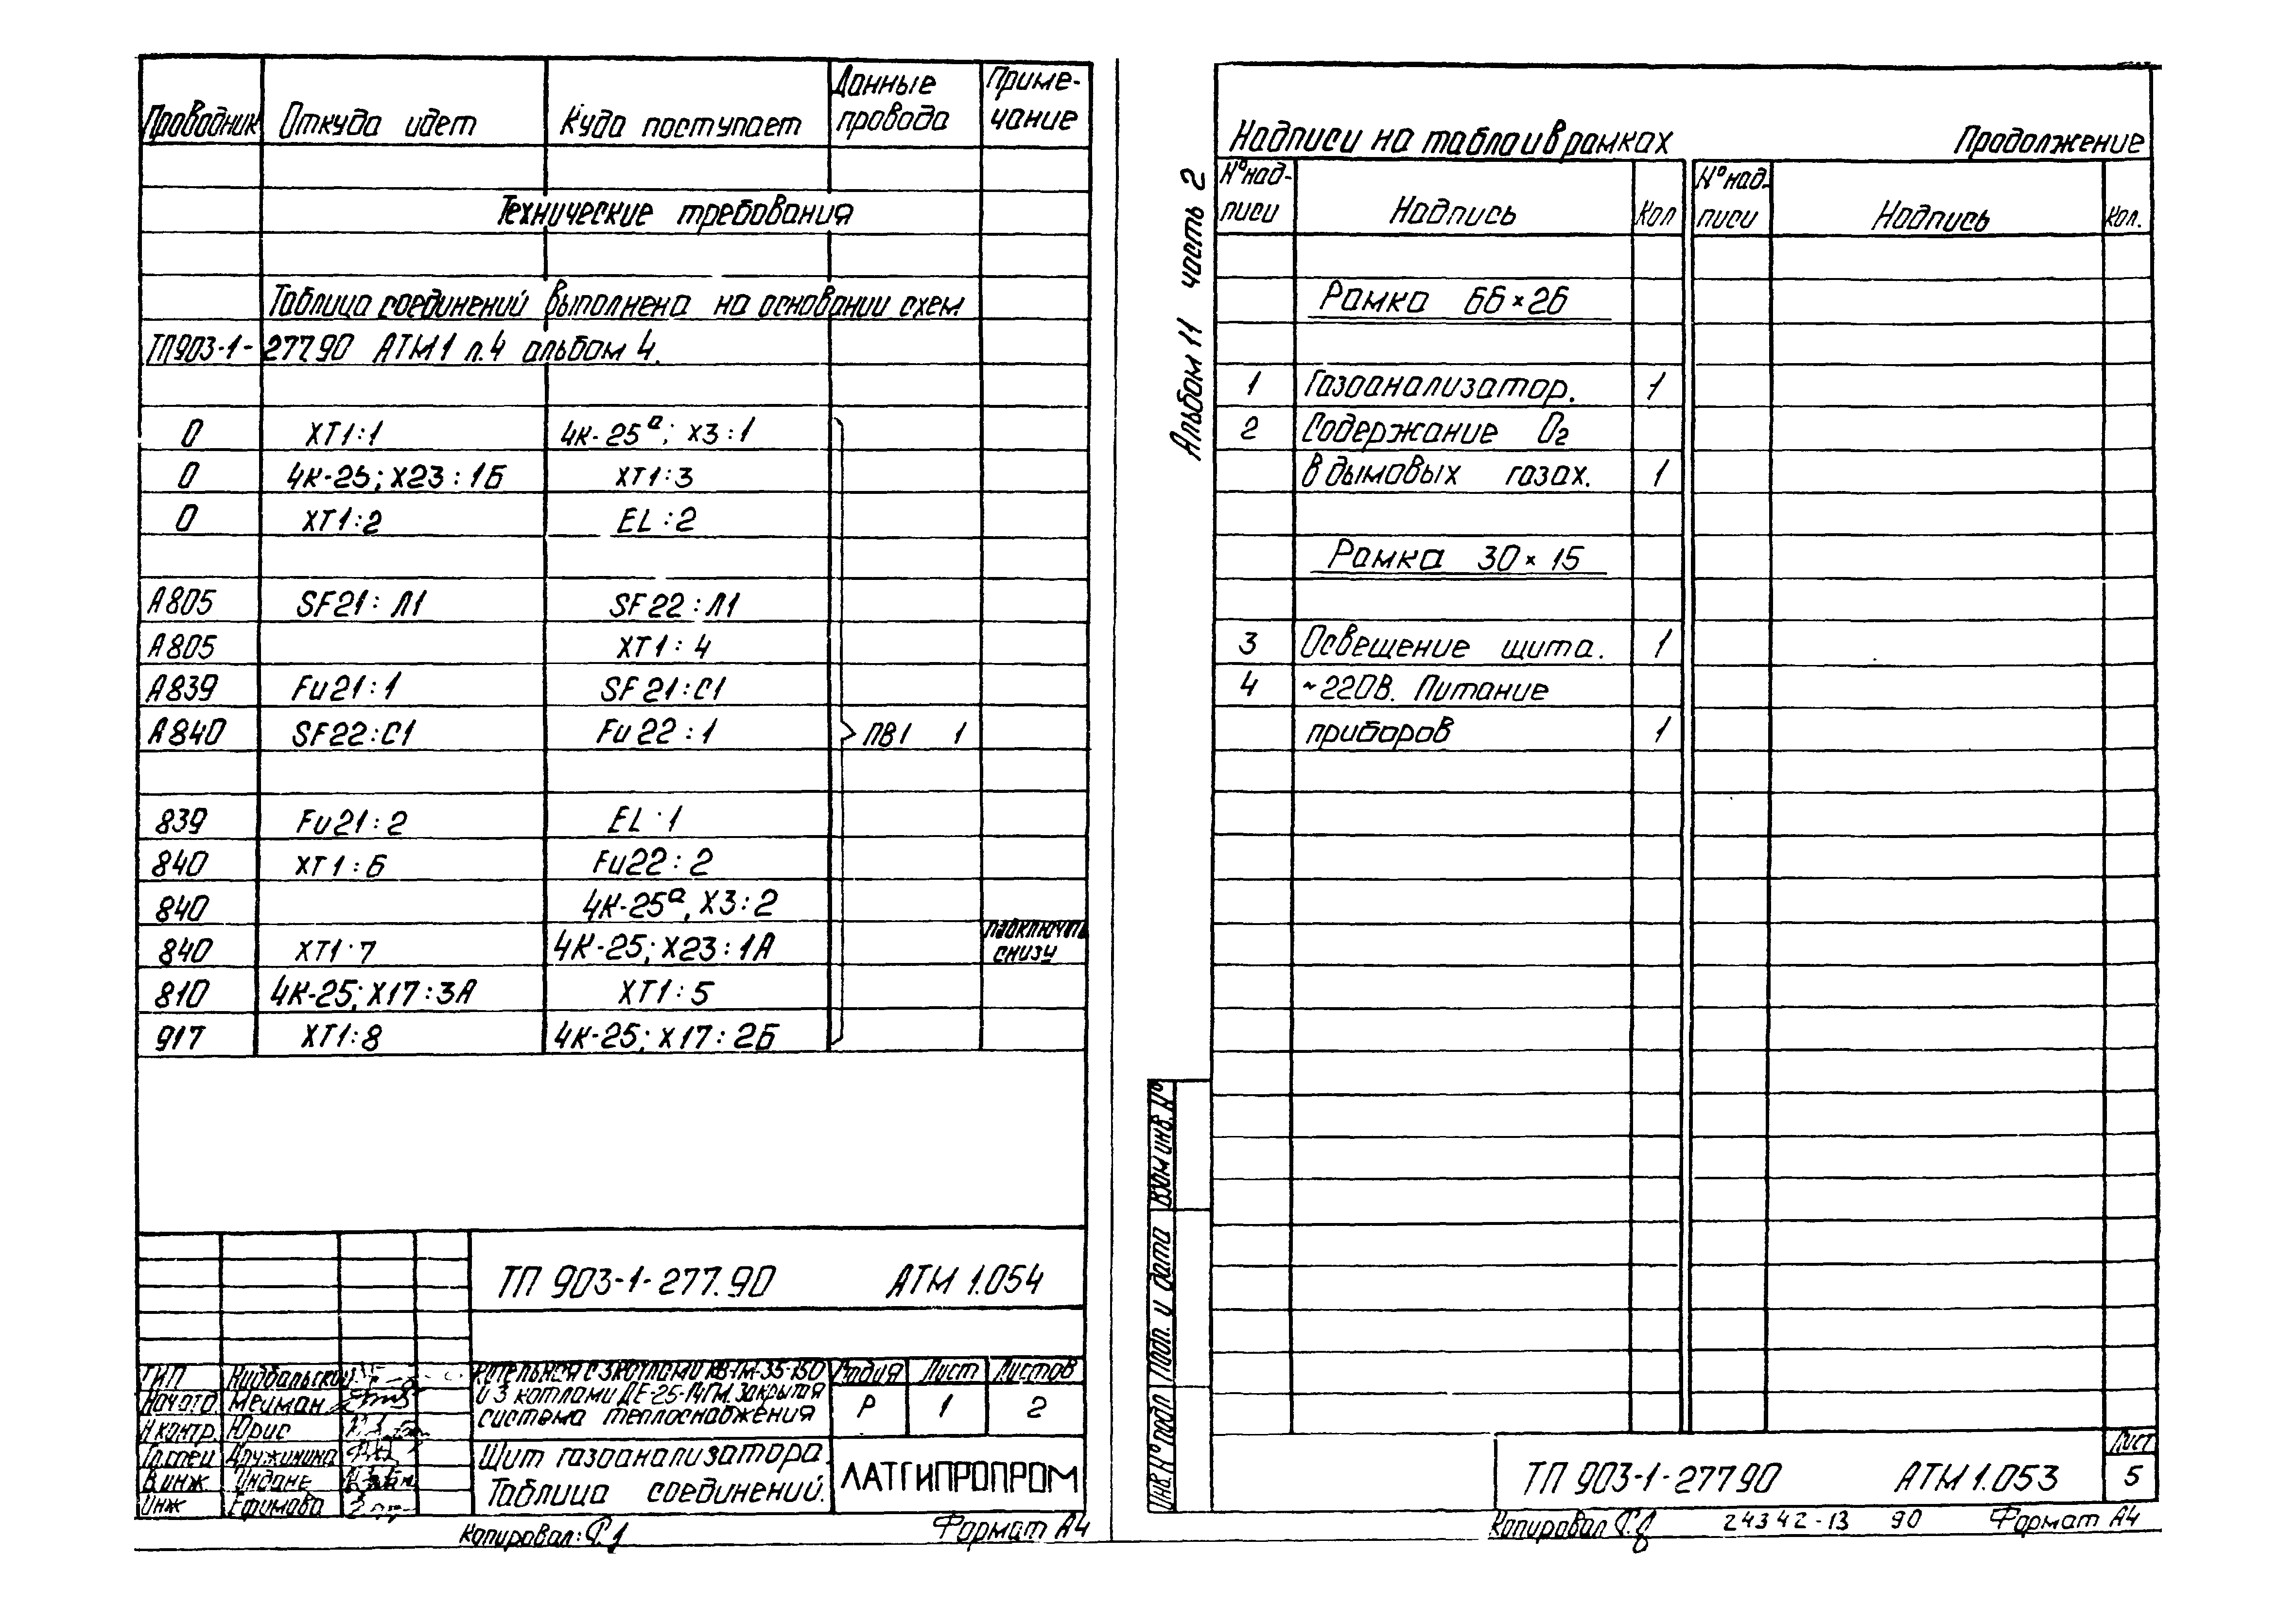 Проводник Откуда идет Куда поступает Данные провода Примечание
Технические требования
Таблица соединений выполнена на основании схем
ТП903-1-277.90 АТМ1 л.4 альбом 4.
0 XT1:1 4К-25ª; X3:1
0 4К-25; X23:1Б XT1:3
0 XT1:2 EL:2
А805 SF21:Л1 SF22:Л1
А805 XT1:4
А839 Fu21:1 SF21:С1
А840 SF22:С1 Fu22:1 ПВ1 1
839 Fu21:2 EL·1
840 XT1:Б Fu22:2
840 4К-25ª, X3:2
840 XT1·7 4К-25; X23:1А подключить снизу
810 4К-25; X17:3А XT1:5
917 XT1:8 4К-25; X17:2Б
ТП 903-1-277.90 АТМ 1.054
ГИП
Нач.отд. Мейман
Н.контр. Юрис
Гл.спец Дружинина
В.инж
Инж Ефимова
Котельная с 3 котлами КВ-ГМ-35-150
и 3 котлами ДЕ-25-14ГМ. Закрытая
система теплоснабжения
Стадия Лист Листов
Р 1 2
Щит газоанализатора.
Таблица соединений.
ЛАТГИПРОПРОМ
Копировал:
Формат А4
Альбом 11 часть 2
Надписи на табло и в рамках Продолжение
N° надписи Надпись Кол N° надписи Надпись Кол.
Рамка 66×26
1 Газоанализатор. 1
2 Содержание О₂
в дымовых газах. 1
Рамка 30×15
3 Освещение щита. 1
4 ~220В. Питание
приборов 1
Инв.N° подл Подп. и дата Взам инв.N°
ТП 903-1-277.90 АТМ 1.053
Лист
5
Копировал 24342-13 90 Формат А4